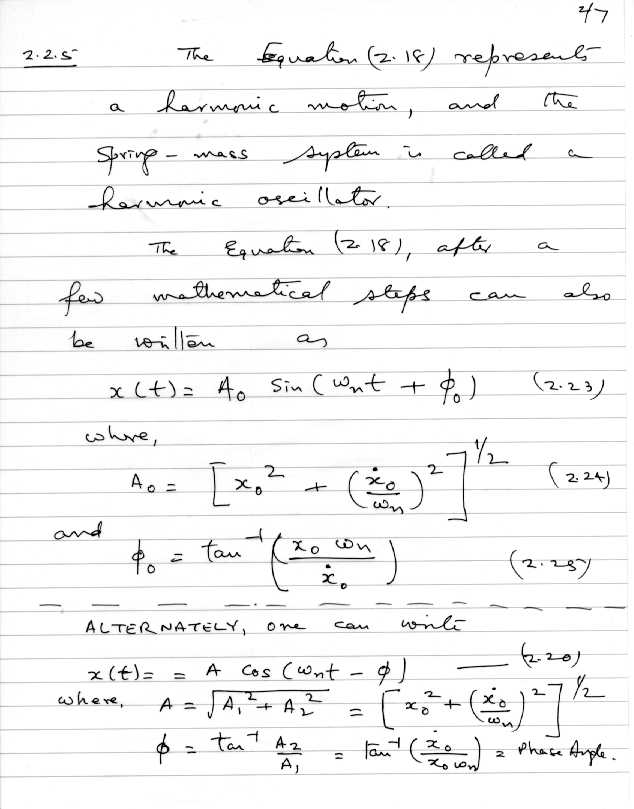 2/7
2.2.5 The Equation (2.18) represents
a harmonic motion, and the
Spring-mass system is called a
harmonic oscillator.
The Equation (2.18), after a
few mathematical steps can also
be written as
x(t) = A₀ Sin(ωₙt + φ₀) (2.23)
where,
A₀ = [x₀² + (ẋ₀/ωₙ)²]^1/2 (2.24)
and
φ₀ = tan⁻¹(x₀ ωₙ/ẋ₀) (2.25)
ALTERNATELY, one can write
x(t) = = A cos(ωₙt - φ) — (2.20)
where, A = √(A₁² + A₂²) = [x₀² + (ẋ₀/ωₙ)²]^1/2
φ = tan⁻¹ A₂/A₁ = tan⁻¹(ẋ₀/x₀ωₙ) = Phase Angle.